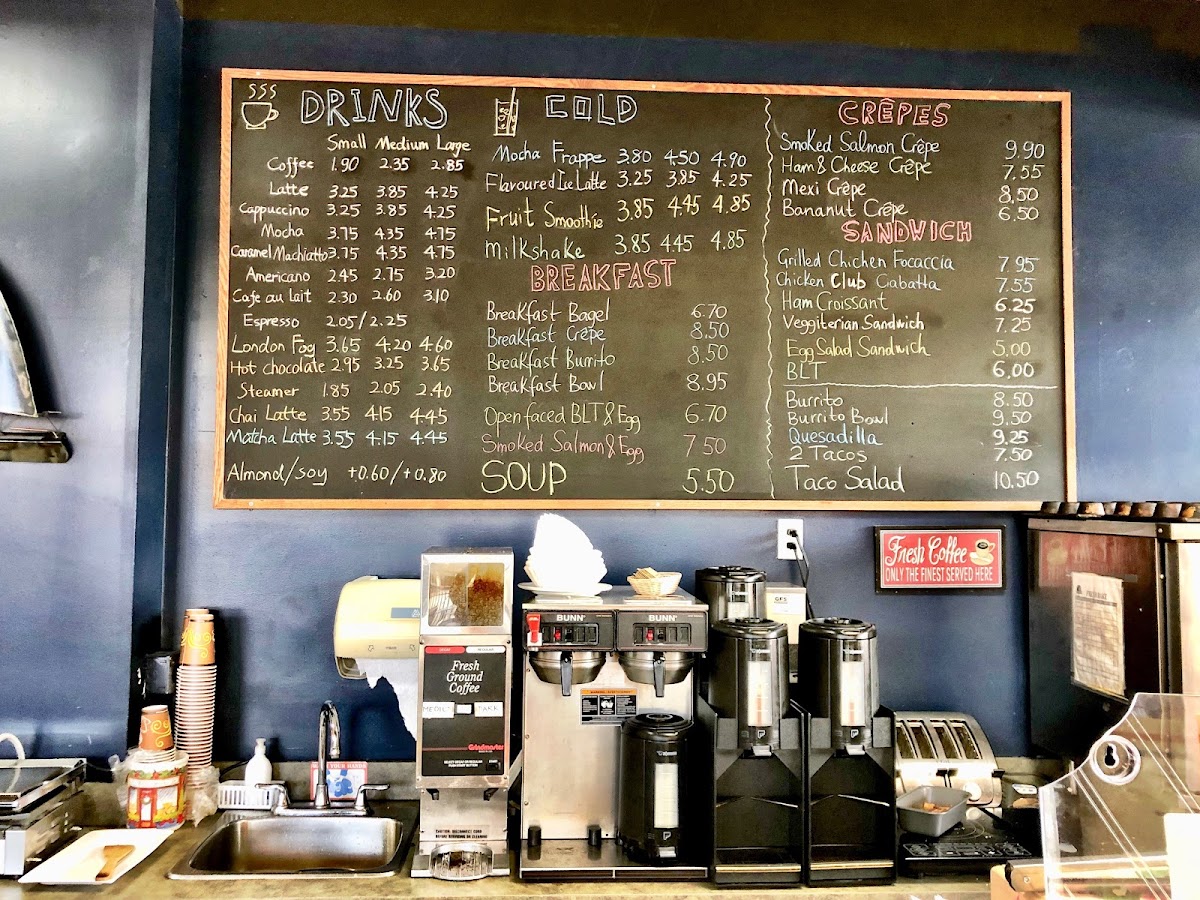 DRINKS
Small Medium Large
Coffee 1.90 2.35 2.85
Latte 3.25 3.85 4.25
Cappuccino 3.25 3.85 4.25
Mocha 3.75 4.35 4.75
Caramel Machiatto 3.75 4.35 4.75
Americano 2.45 2.75 3.20
Cafe au lait 2.30 2.60 3.10
Espresso 2.05/2.25
London Fog 3.65 4.20 4.60
Hot chocolate 2.95 3.25 3.65
Steamer 1.85 2.05 2.40
Chai Latte 3.55 4.15 4.45
Matcha Latte 3.55 4.15 4.45
Almond/soy +0.60/+0.80
COLD
Mocha Frappe 3.80 4.50 4.90
Flavoured Ice Latte 3.25 3.85 4.25
Fruit Smoothie 3.85 4.45 4.85
Milkshake 3.85 4.45 4.85
BREAKFAST
Breakfast Bagel 6.70
Breakfast Crêpe 8.50
Breakfast Burrito 8.50
Breakfast Bowl 8.95
Open faced BLT & Egg 6.70
Smoked Salmon & Egg 7.50
SOUP 5.50
CRÊPES
Smoked Salmon Crêpe 9.90
Ham & Cheese Crêpe 7.55
Mexi Crêpe 8.50
Bananut Crêpe 6.50
SANDWICH
Grilled Chichen Focaccia 7.95
Chicken Club Ciabatta 7.55
Ham Croissant 6.25
Veggiterian Sandwich 7.25
Egg Salad Sandwich 5.00
BLT 6.00
Burrito 8.50
Burrito Bowl 9.50
Quesadilla 9.25
2 Tacos 7.50
Taco Salad 10.50
Fresh Coffee
ONLY THE FINEST SERVED HERE
BUNN
BUNN
Fresh
Ground
Coffee
MEDIUM DARK
Grindmaster